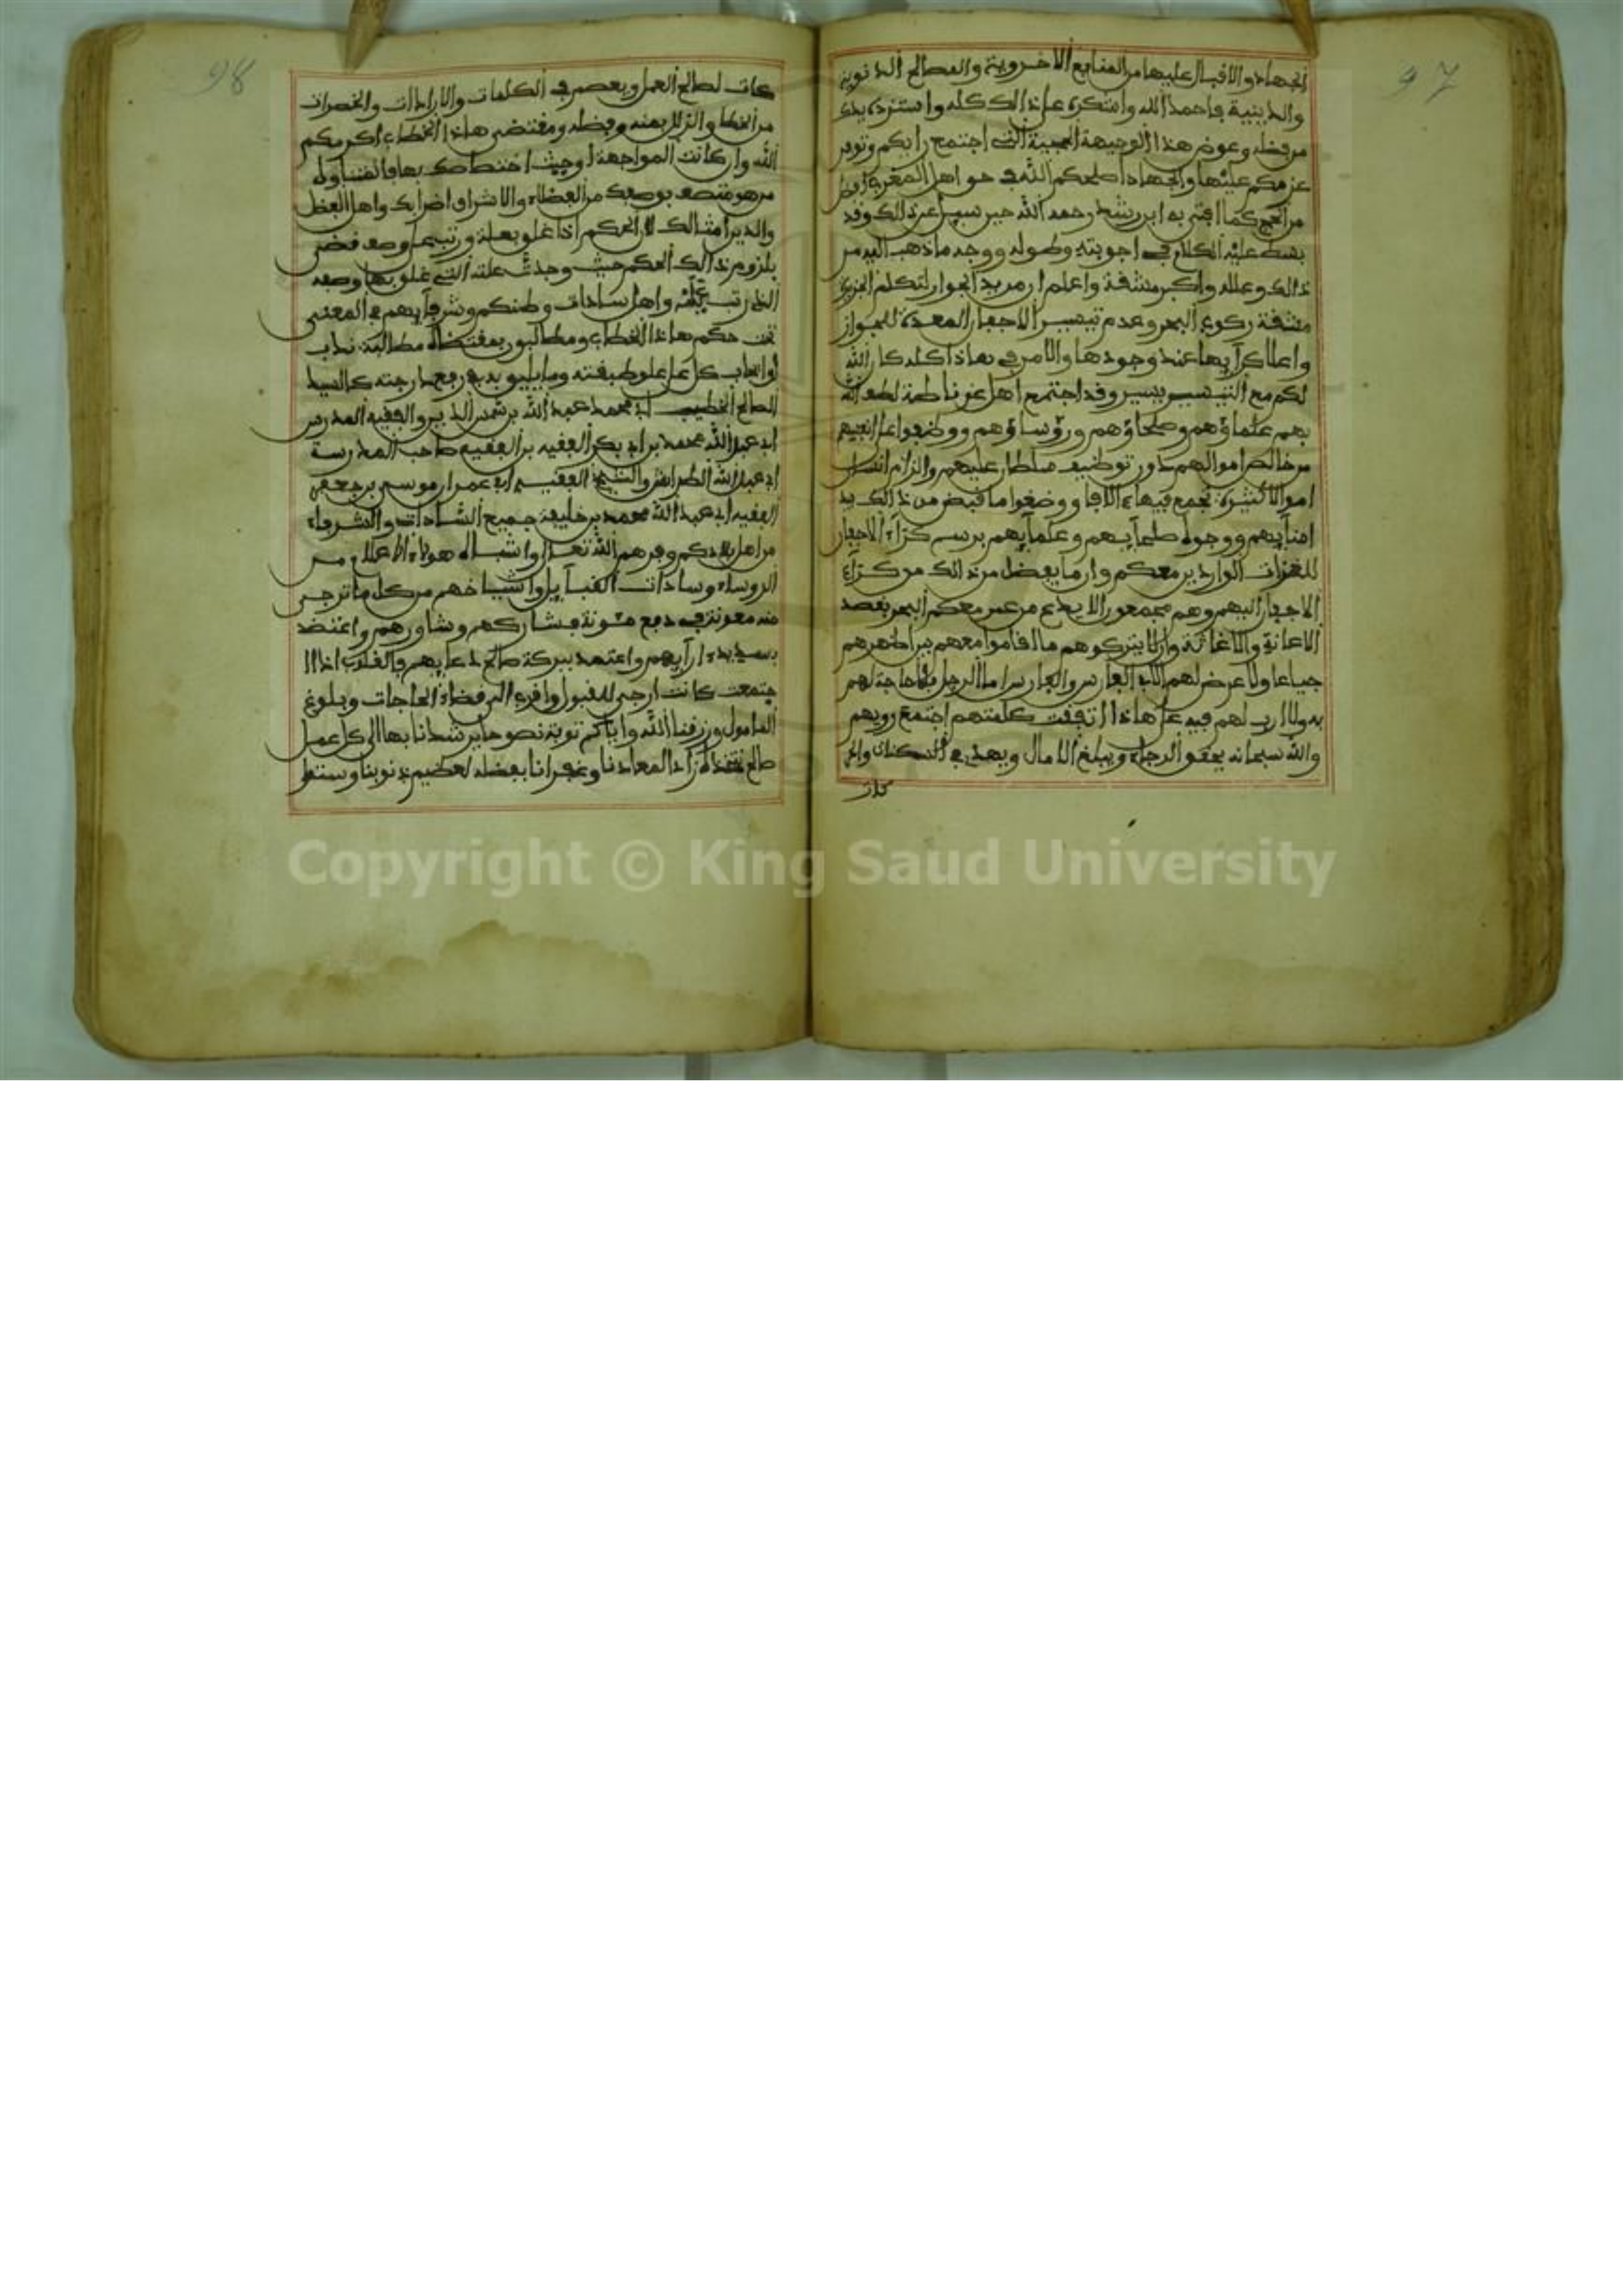 97
الجهاد والاقبال عليها من المنابع الاخروية والمصالح الدنوية
والدينية فاحمد الله واشكره على ذالك كله واستزده يزدك
من فضله وعوض هذا الوجيهة العجيبة التي اجتمع رايكم وتوفر
عزمكم عليها والجهاد اصلحكم الله في حق اهل المغرب افضل
من الحج كما افتى به ابن رشد رحمه الله حين سيل عن ذالك وقد
بسط عليه الكلام في اجوبته وطوله ووجه ما ذهب اليه من
ذالك وعلله واكبر مشقة واعلم ان مريد الجواز لتكلم الجزيرة
مشقة ركوب البحر وعدم تيسير الاجفان المعدة للجواز
واعطا كرايها عند وجودها والامر في هاذا كله كان الله
لكم مع التيسير يسير وقد اجتمع اهل غرناطة لطف الله
بهم علماؤهم وصلحاؤهم ورؤساؤهم ووضعوا على انفسهم
من خالص اموالهم دون توظيف سلطان عليهم والزام انسان
اموالا كثيرة تجمع فيها الالاف ووضعوا ما قبض من ذالك بيد
امنايهم ووجوه صلحايهم وعلمايهم برسم كراء الاجفان
للغزات الواردين معكم وان ما يفضل من ذالك من كراء
الاجفان اليهم وهم مجمعون الا يدع من عبر معكم البحر بقصد
الاعانة والاغاثة وان لا يتركوهم ما اقاموا معهم بين اظهرهم
جياعا ولا غرض لهم الا في الفارس والفارس اما الرجل فلا حاجة لهم
به ولا ارب لهم فيه على هاذا اتفقت كلمتهم اجتمع رويهم
والله سبحانه يحقق الرجاء ويبلغ الامال ويهدي في السكنات والحر
كات
98
كات لصالح العمل ويعصم في الكلمات والارادات والخطرات
من الخطا والزلل بمنه وفضله ومقتضى هاذا الخطاب اكرمكم
الله وان كانت المواجهة اوجبت اختصاصك بها فالمتناول
من هو متصف بوصفك من الفضلاء والاشراف اضرابك واهل الفضل
والدين امثالك لان الحكم اذا علق بعلة ورتب على وصف قضى
بلزوم ذالك الحكم حيث وجدت علته التي علق بها وصفه
الذي رتب عليه واهل سادات وطنكم وشرفايهم في المعنى
تحت حكم هاذا الخطاب ومطالبون بمقتضاه مطالبة ندب
او ايجاب كل على علو طبقته وما يليق به في رفيع درجته كالسيد
الصالح الخطيب ابي محمد عبد الله بن شمس الدين والفقيه المدرس
ابي عبد الله محمد بن ابي بكر الفقيه بن الفقيه صاحب المدرسة
ابي عبد الله الطرابلش والشيخ الفقيه ابي عمران موسى بن جعفر
الفقيه ابي عبد الله محمد بن خليفة جميع السادات والشرفاء
من اهل بلادكم وفرهم الله تعالى واشباه هولاء الاعلام من
الروساء وسادات القبايل واشياخهم من كل ما ترجى
منه معونة في دفع مئونة فشاركهم وشاورهم واعتضد
بسديد اراءيهم واعتمد ببركة صالح دعايهم فالقلوب اذا ا
جتمعت كانت ارجى للقبول واقرب الى قضاء الحاجات وبلوغ
المامول ورزقنا الله واياكم توبة نصوحا يرشدنا بها الى كل عمل
صالح نتخذه زادا لمعادنا وغفر لنا بفضله لعظيم ذنوبنا وستر
Copyright © King Saud University